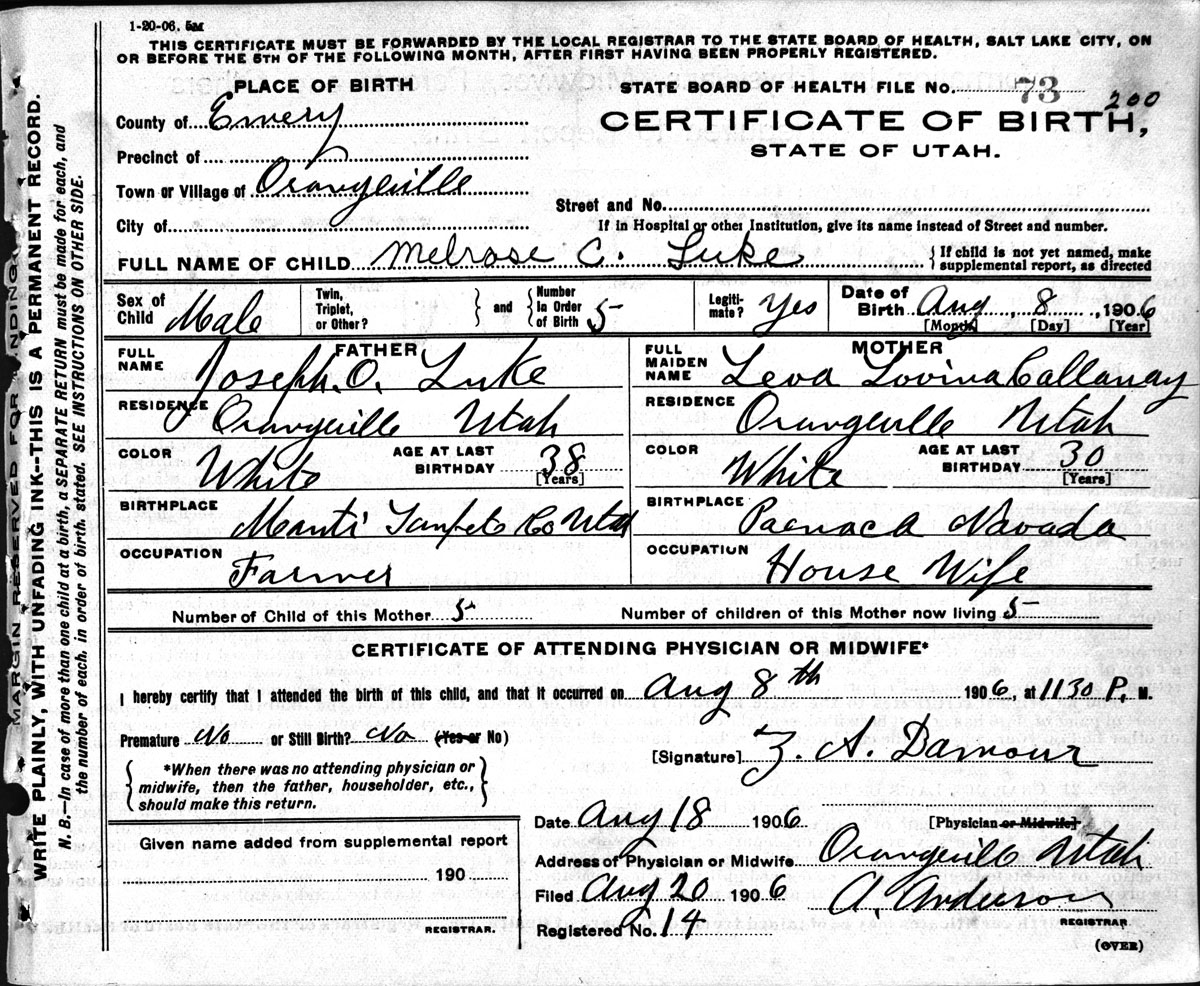 1-20-06. 5M
THIS CERTIFICATE MUST BE FORWARDED BY THE LOCAL REGISTRAR TO THE STATE BOARD OF HEALTH, SALT LAKE CITY, ON
OR BEFORE THE 5TH OF THE FOLLOWING MONTH, AFTER FIRST HAVING BEEN PROPERLY REGISTERED.
PLACE OF BIRTH
STATE BOARD OF HEALTH FILE NO. 73 200
County of Emery
CERTIFICATE OF BIRTH,
Precinct of
STATE OF UTAH.
Town or Village of Orangeville
Street and No.
City of
If in Hospital or other Institution, give its name instead of Street and number.
FULL NAME OF CHILD Melrose C. Luke
{If child is not yet named, make
supplemental report, as directed
Sex of
Child Male
Twin,
Triplet,
or Other?
} and {
Number
in Order
of Birth 5
Legiti-
mate? Yes
Date of
Birth Aug 8, 1906
[Month] [Day] [Year]
FATHER
FULL
NAME Joseph. O. Luke
MOTHER
FULL
MAIDEN
NAME Leva Lovina Callaway
RESIDENCE Orangeville Utah
RESIDENCE Orangeville Utah
COLOR White
AGE AT LAST
BIRTHDAY 38
[Years]
COLOR White
AGE AT LAST
BIRTHDAY 30
[Years]
BIRTHPLACE Manti Sanpete Co Utah
BIRTHPLACE Paenaca Navada
OCCUPATION Farmer
OCCUPATION House Wife
Number of Child of this Mother 5
Number of children of this Mother now living 5
CERTIFICATE OF ATTENDING PHYSICIAN OR MIDWIFE*
I hereby certify that I attended the birth of this child, and that it occurred on Aug 8th 1906, at 1130 P. M.
Premature No or Still Birth? No (Yes or No)
[Signature] A.
{*When there was no attending physician or
midwife, then the father, householder, etc.,
should make this return.}
Date Aug 18 1906
[Physician or Midwife]
Given name added from supplemental report
190
REGISTRAR.
Address of Physician or Midwife Orangeville Utah
Filed Aug 20 1906 A. Anderson
REGISTRAR
Registered No. 14
(OVER)
MARGIN RESERVED FOR BINDING
WRITE PLAINLY, WITH UNFADING INK--THIS IS A PERMANENT RECORD.
N. B.—In case of more than one child at a birth, a SEPARATE RETURN must be made for each, and
the number of each, in order of birth, stated. SEE INSTRUCTIONS ON OTHER SIDE.